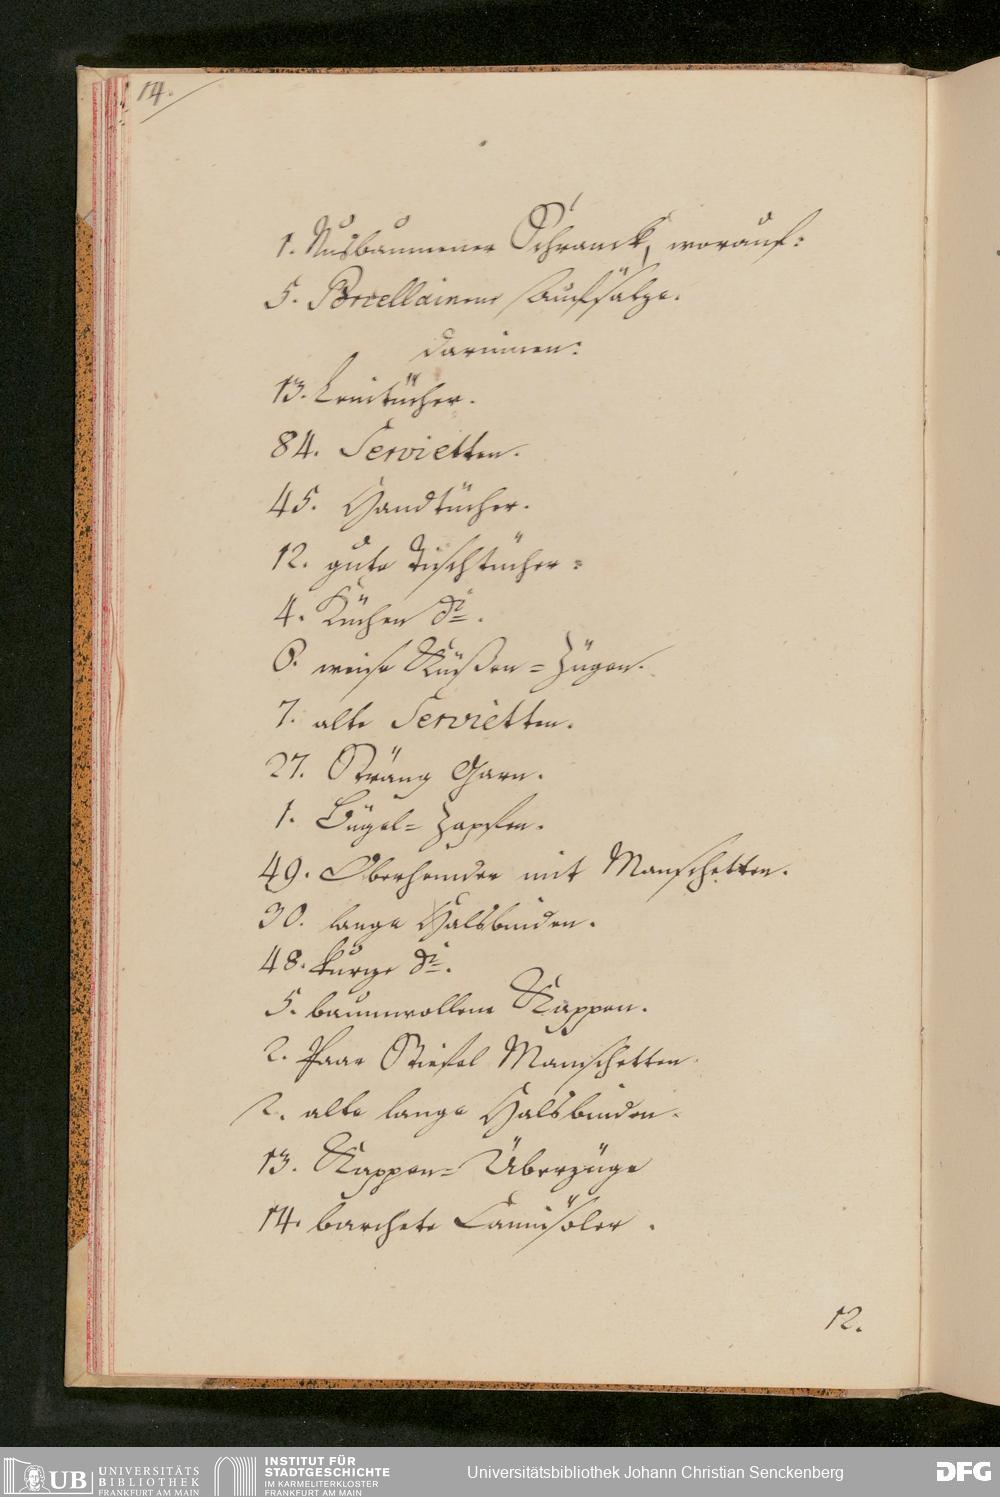 14.
1. Nusbaumener Schranck, worauf:
5. Porcellainene Aufsätze.
darinnen:
13. Leintücher.
84. Servietten.
45. Handtücher.
12. gute Tischtücher.
4. Küchen dº.
6. weise Küßen=Zügen.
7. alte Servietten.
27. Sträng Garn.
1. Bügel=Zapfen.
49. Oberhemder mit Manschetten.
30. lange Halsbinden.
48. kurze dº.
5. baumwollene Kappen.
2. Paar Stiefel Manschetten
2. alte lange Halsbinden.
13. Kappen=Überzüge
14. barchete Camisöler.
12.
UB UNIVERSITÄTS
BIBLIOTHEK
FRANKFURT AM MAIN
INSTITUT FÜR
STADTGESCHICHTE
IM KARMELITERKLOSTER
FRANKFURT AM MAIN
Universitätsbibliothek Johann Christian Senckenberg
DFG